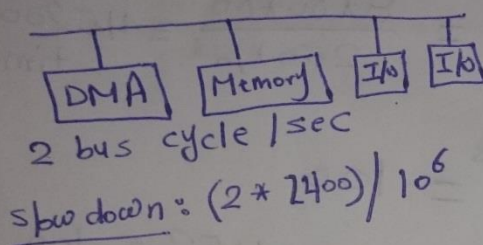 DMA Memory I/O I/O
2 bus cycle / sec
slow down : (2 * 2400) / 10^6